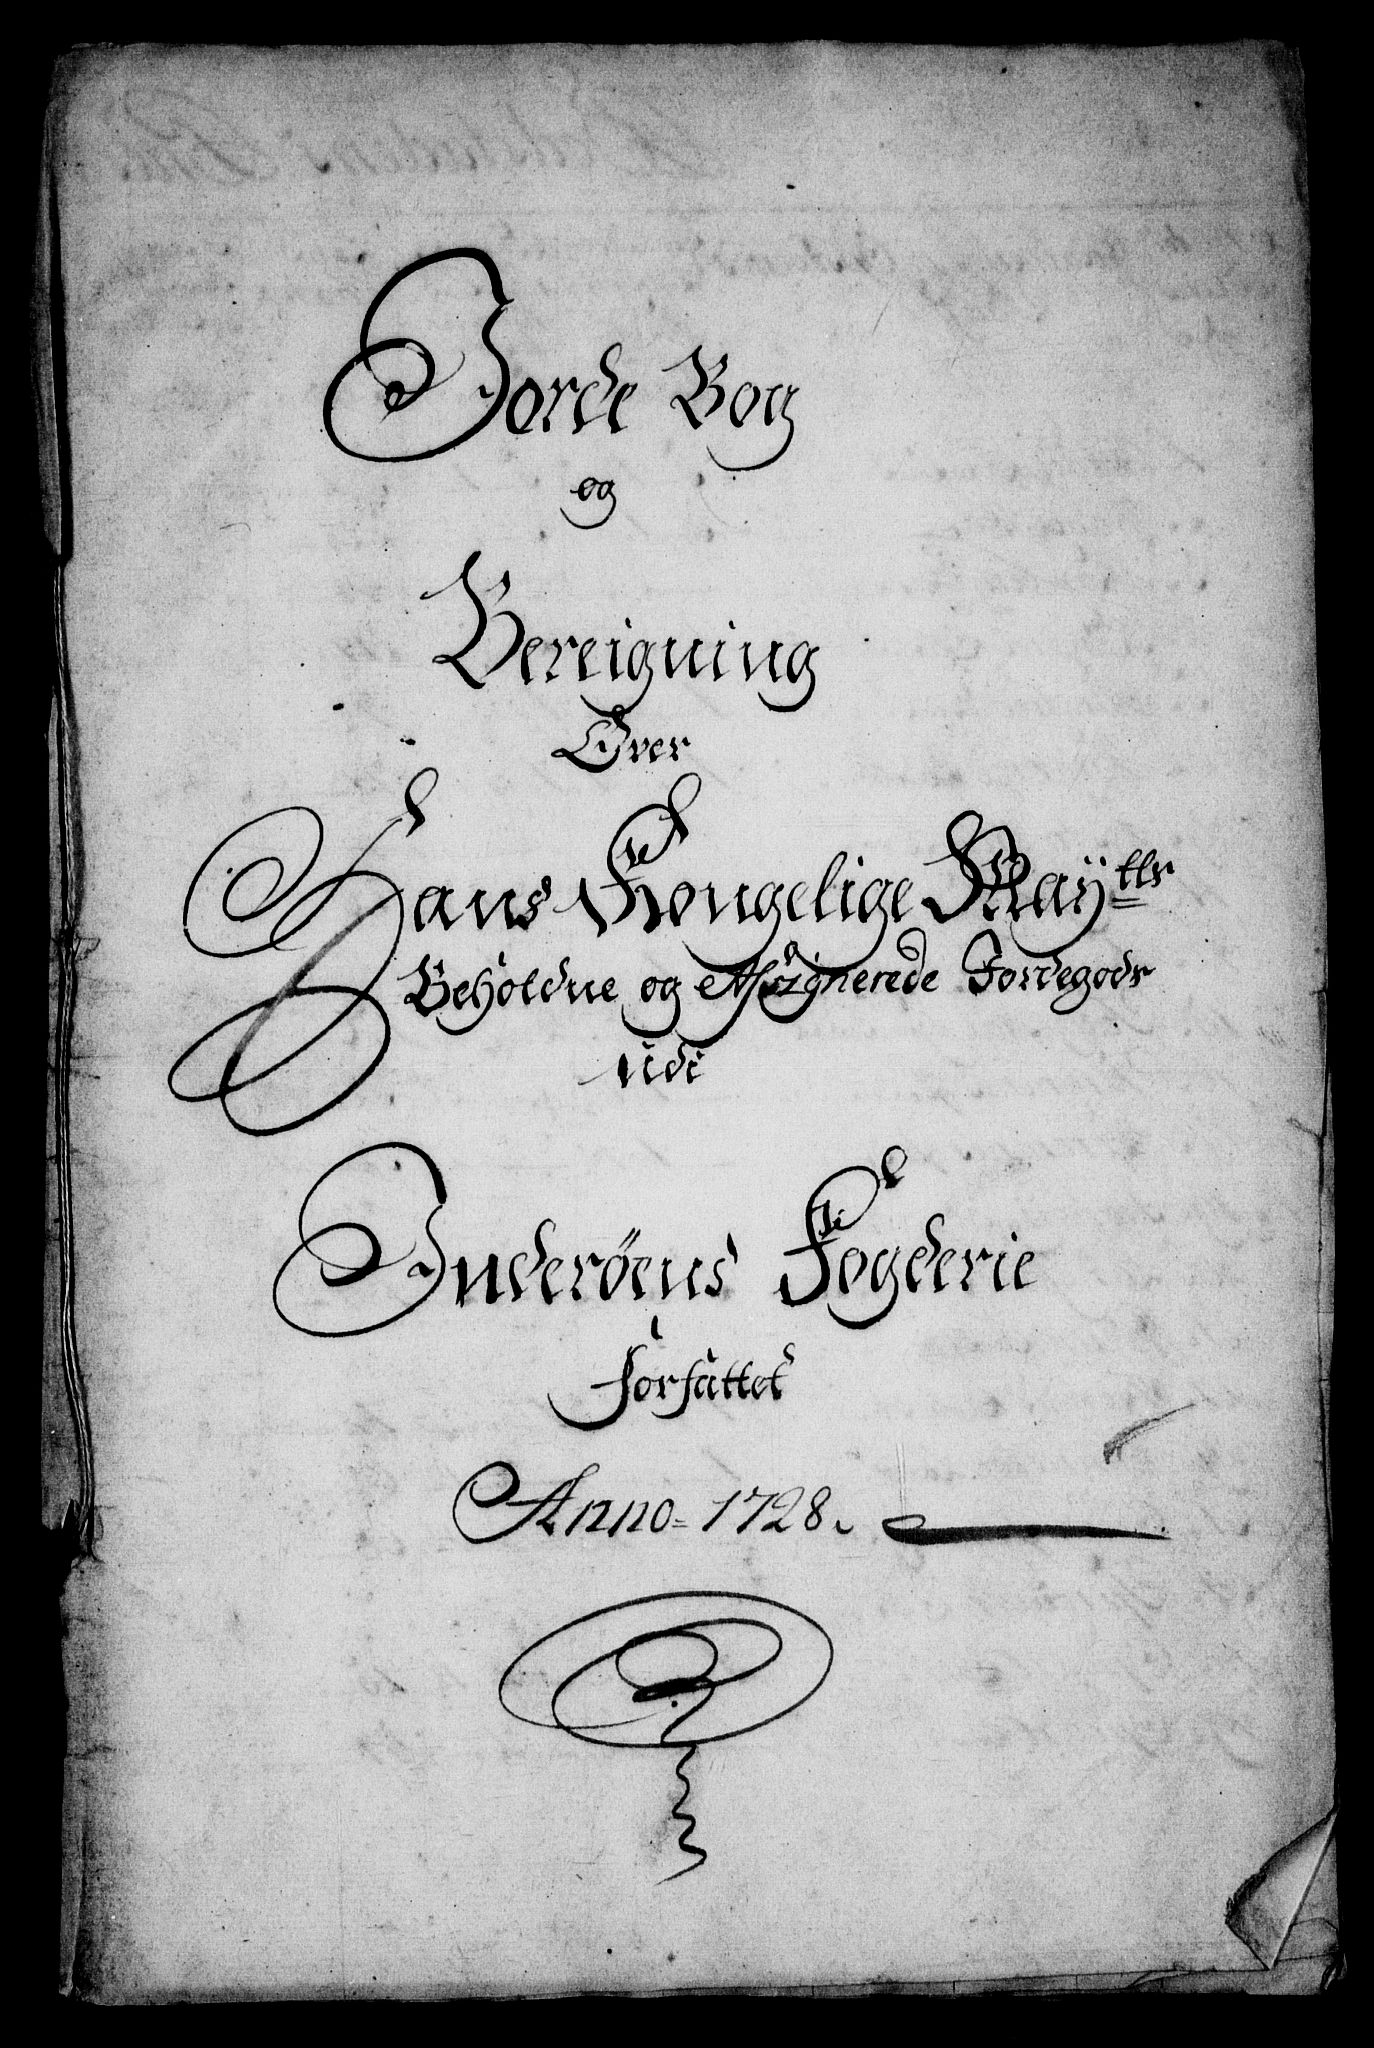 Jorde Bog
og
Bereigning
Over
Hans Kongelige Maÿtts
Beholdne og Assignerede Jordegods
udi
Inderöens Fogderie
forfattet
Anno 1728.